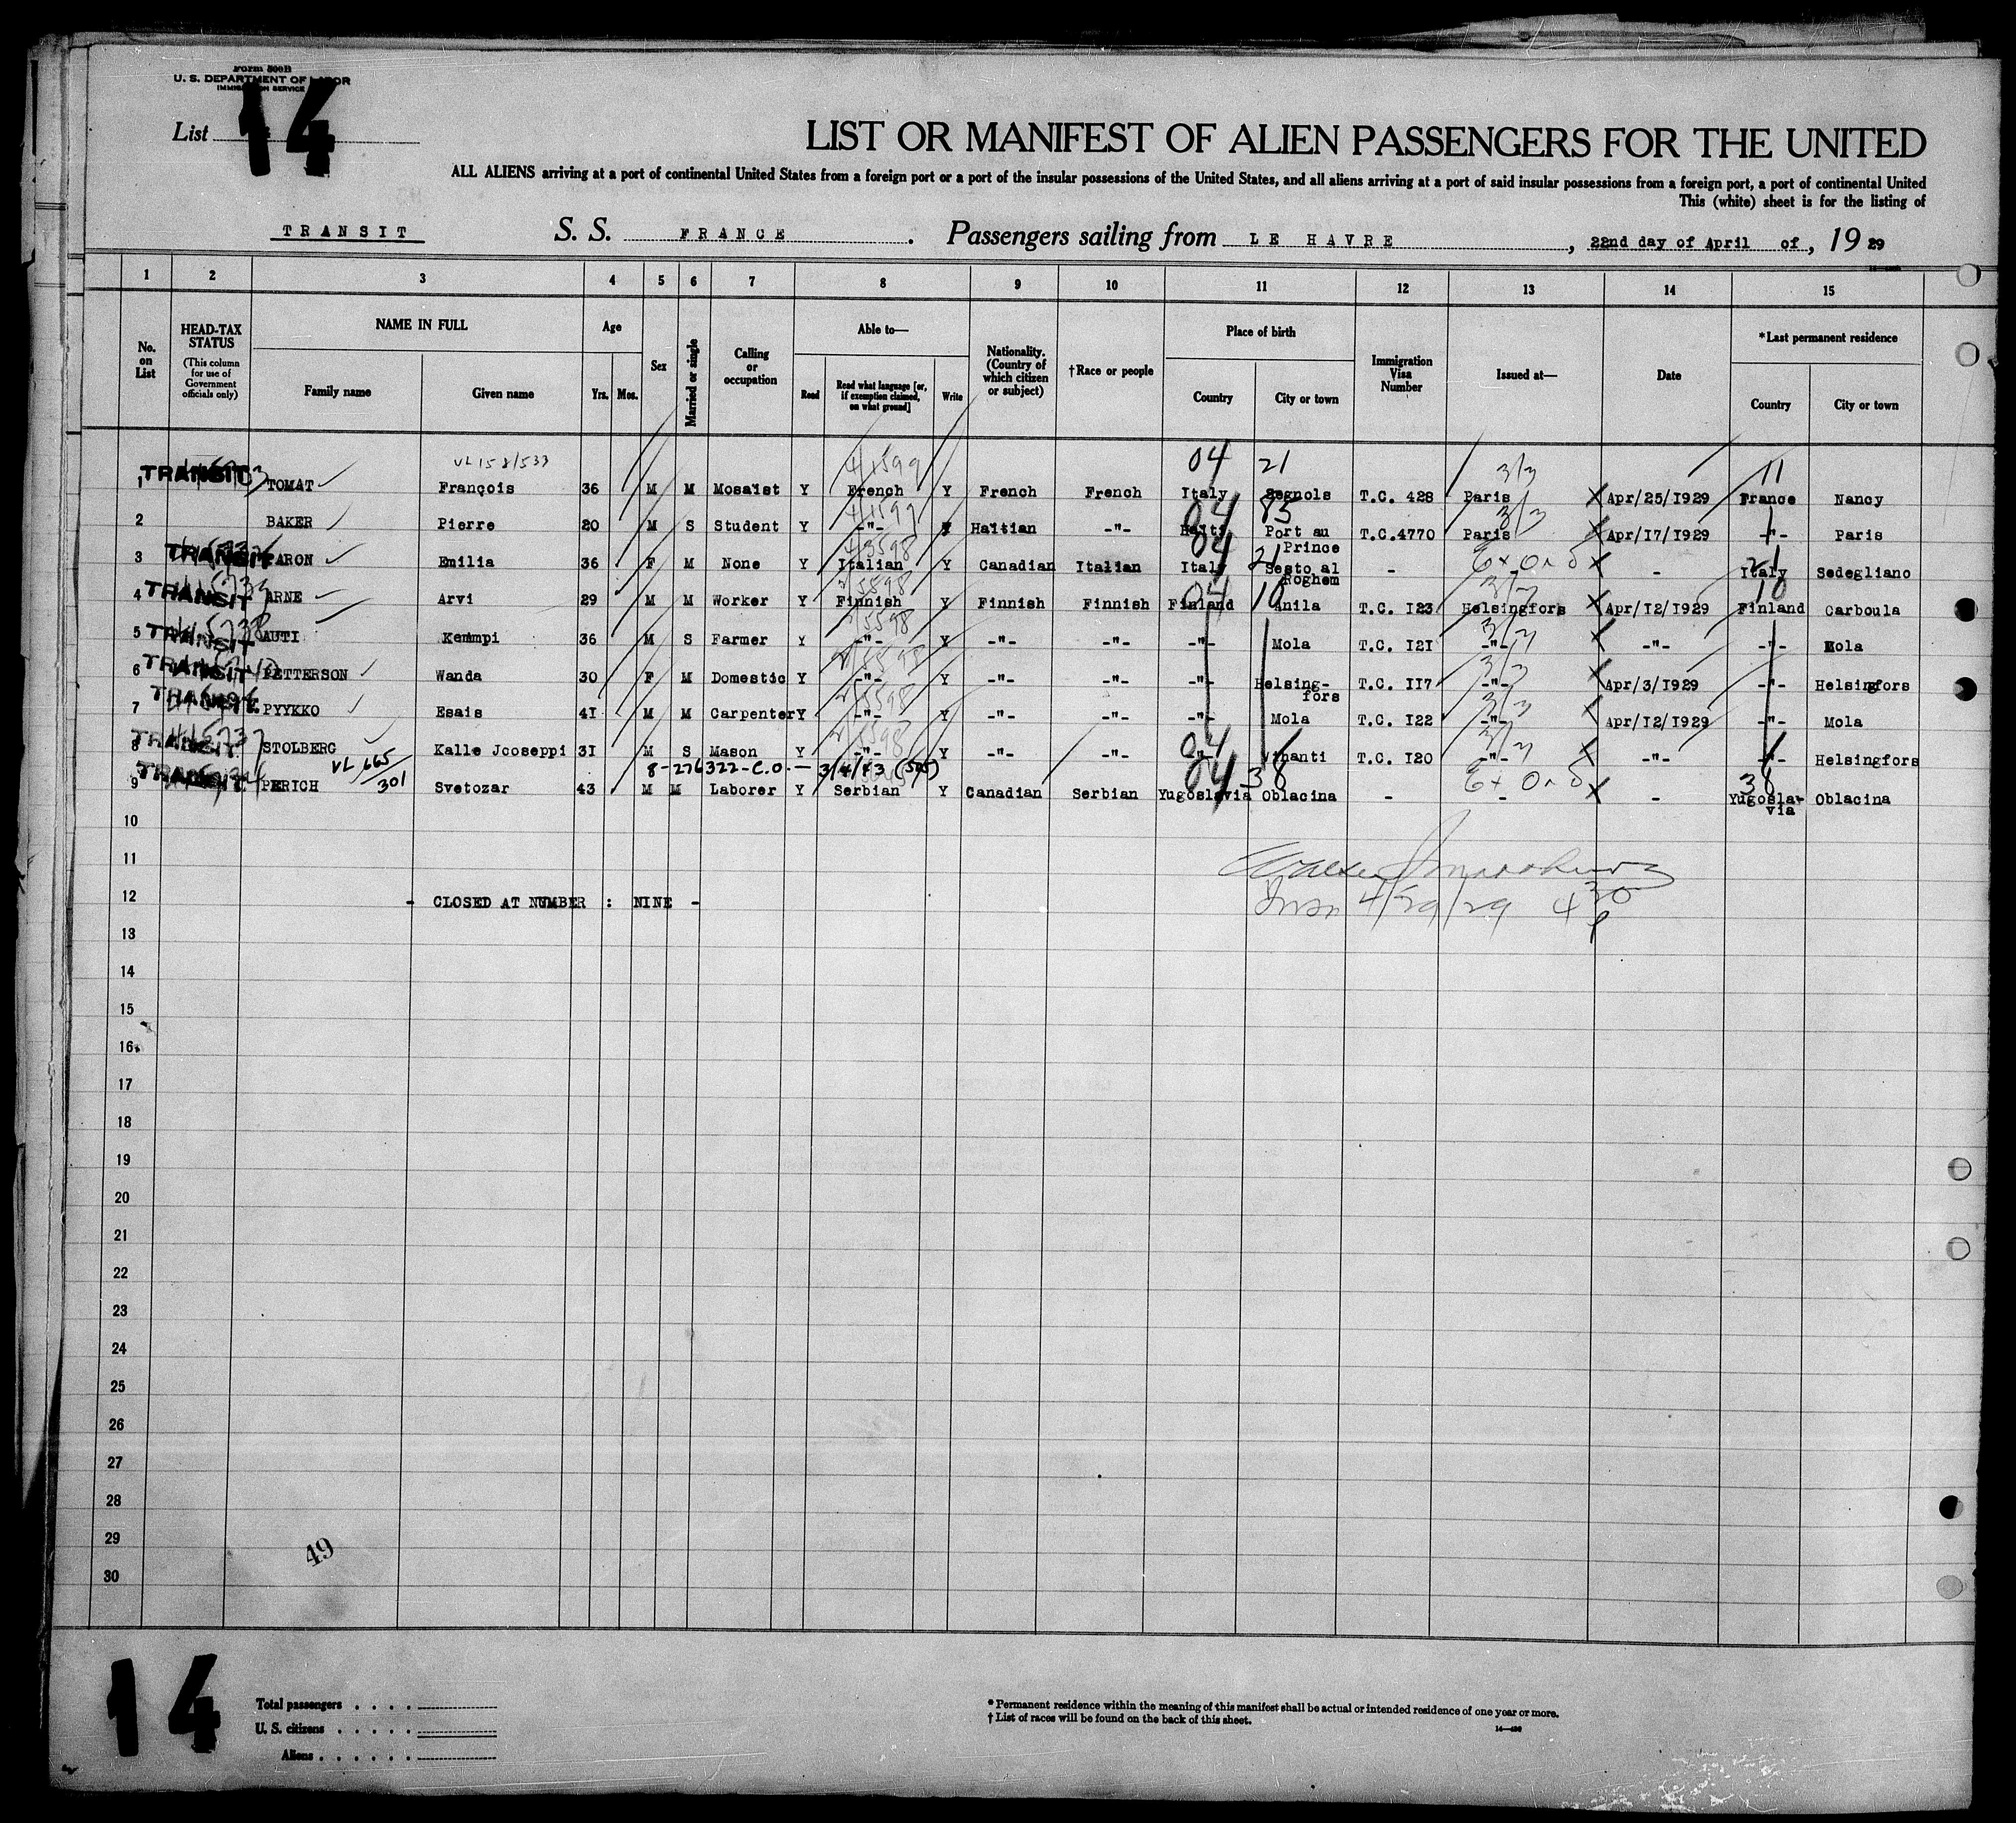 Form 500B
U. S. DEPARTMENT OF LABOR
IMMIGRATION SERVICE
List 14
LIST OR MANIFEST OF ALIEN PASSENGERS FOR THE UNITED
ALL ALIENS arriving at a port of continental United States from a foreign port or a port of the insular possessions of the United States, and all aliens arriving at a port of said insular possessions from a foreign port, a port of continental United
This (white) sheet is for the listing of
TRANSIT S. S. FRANCE . Passengers sailing from LE HAVRE , 22nd day of April of , 19 29
1 2 3 4 5 6 7 8 9 10 11 12 13 14 15
No. on List
HEAD-TAX STATUS (This column for use of Government officials only)
NAME IN FULL
Family name Given name
Age
Yrs. Mos.
Sex
Married or single
Calling or occupation
Able to—
Read Read what language [or, if exemption claimed, on what ground] Write
Nationality. (Country of which citizen or subject)
†Race or people
Place of birth
Country City or town
Immigration Visa Number
Issued at—
Date
*Last permanent residence
Country City or town
VL 158/533 4/1599 04 21 3/3 11
1 TRANSIT TOMAT François 36 M M Mosaïst Y French Y French French Italy Segnols T.C. 428 Paris Apr/25/1929 France Nancy
2 BAKER Pierre 20 M S Student Y -"- Y Haïtian -"- Haïti Port au Prince T.C.4770 Paris Apr/17/1929 -"- Paris
3 TRANSIT Emilia 36 F M None Y Italian Y Canadian Italian Italy Sesto al Roghem - - Italy Sedegliano
4 TRANSIT ARNE Arvi 29 M M Worker Y Finnish Y Finnish Finnish Finland Anila T.C. I23 Helsingfors Apr/I2/I929 Finland Carboula
5 TRANSIT AUTI Kemmpi 36 M S Farmer Y -"- Y -"- -"- -"- Mola T.C. I2I -"- -"- -"- Mola
6 TRANSIT PETTERSON Wanda 30 F M Domestic Y -"- Y -"- -"- -"- Helsing-fors T.C. II7 -"- Apr/3/I929 -"- Helsingfors
7 TRANSIT PYYKKO Esais 4I M M Carpenter Y -"- Y -"- -"- -"- Mola T.C. I22 -"- Apr/I2/I929 -"- Mola
8 TRANSIT STOLBERG Kalle Jooseppi 3I M S Mason Y -"- Y -"- -"- -"- Vihanti T.C. I20 -"- -"- -"- Helsingfors
VL 665/301 8-276322-C.O.— 3/4/43 (505) 04 38 38
9 TRANSIT PERICH Svetozar 43 M M Laborer Y Serbian Y Canadian Serbian Yugoslavia Oblacina - - - Yugosla-via Oblacina
10
11
12 - CLOSED AT NUMBER : NINE -
4/29/29 4 30
13
14
15
16
17
18
19
20
21
22
23
24
25
26
27
28
29
49
30
14
Total passengers . . . .
U. S. citizens . . . . .
Aliens . . . . . .
* Permanent residence within the meaning of this manifest shall be actual or intended residence of one year or more.
† List of races will be found on the back of this sheet.